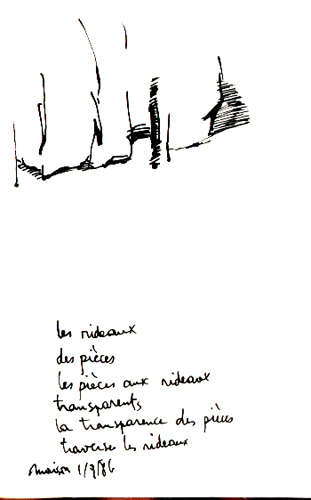 les rideaux
des pièces
les pièces aux rideaux
transparents
la transparence des pièces
traverse les rideaux
maison 1/9/86